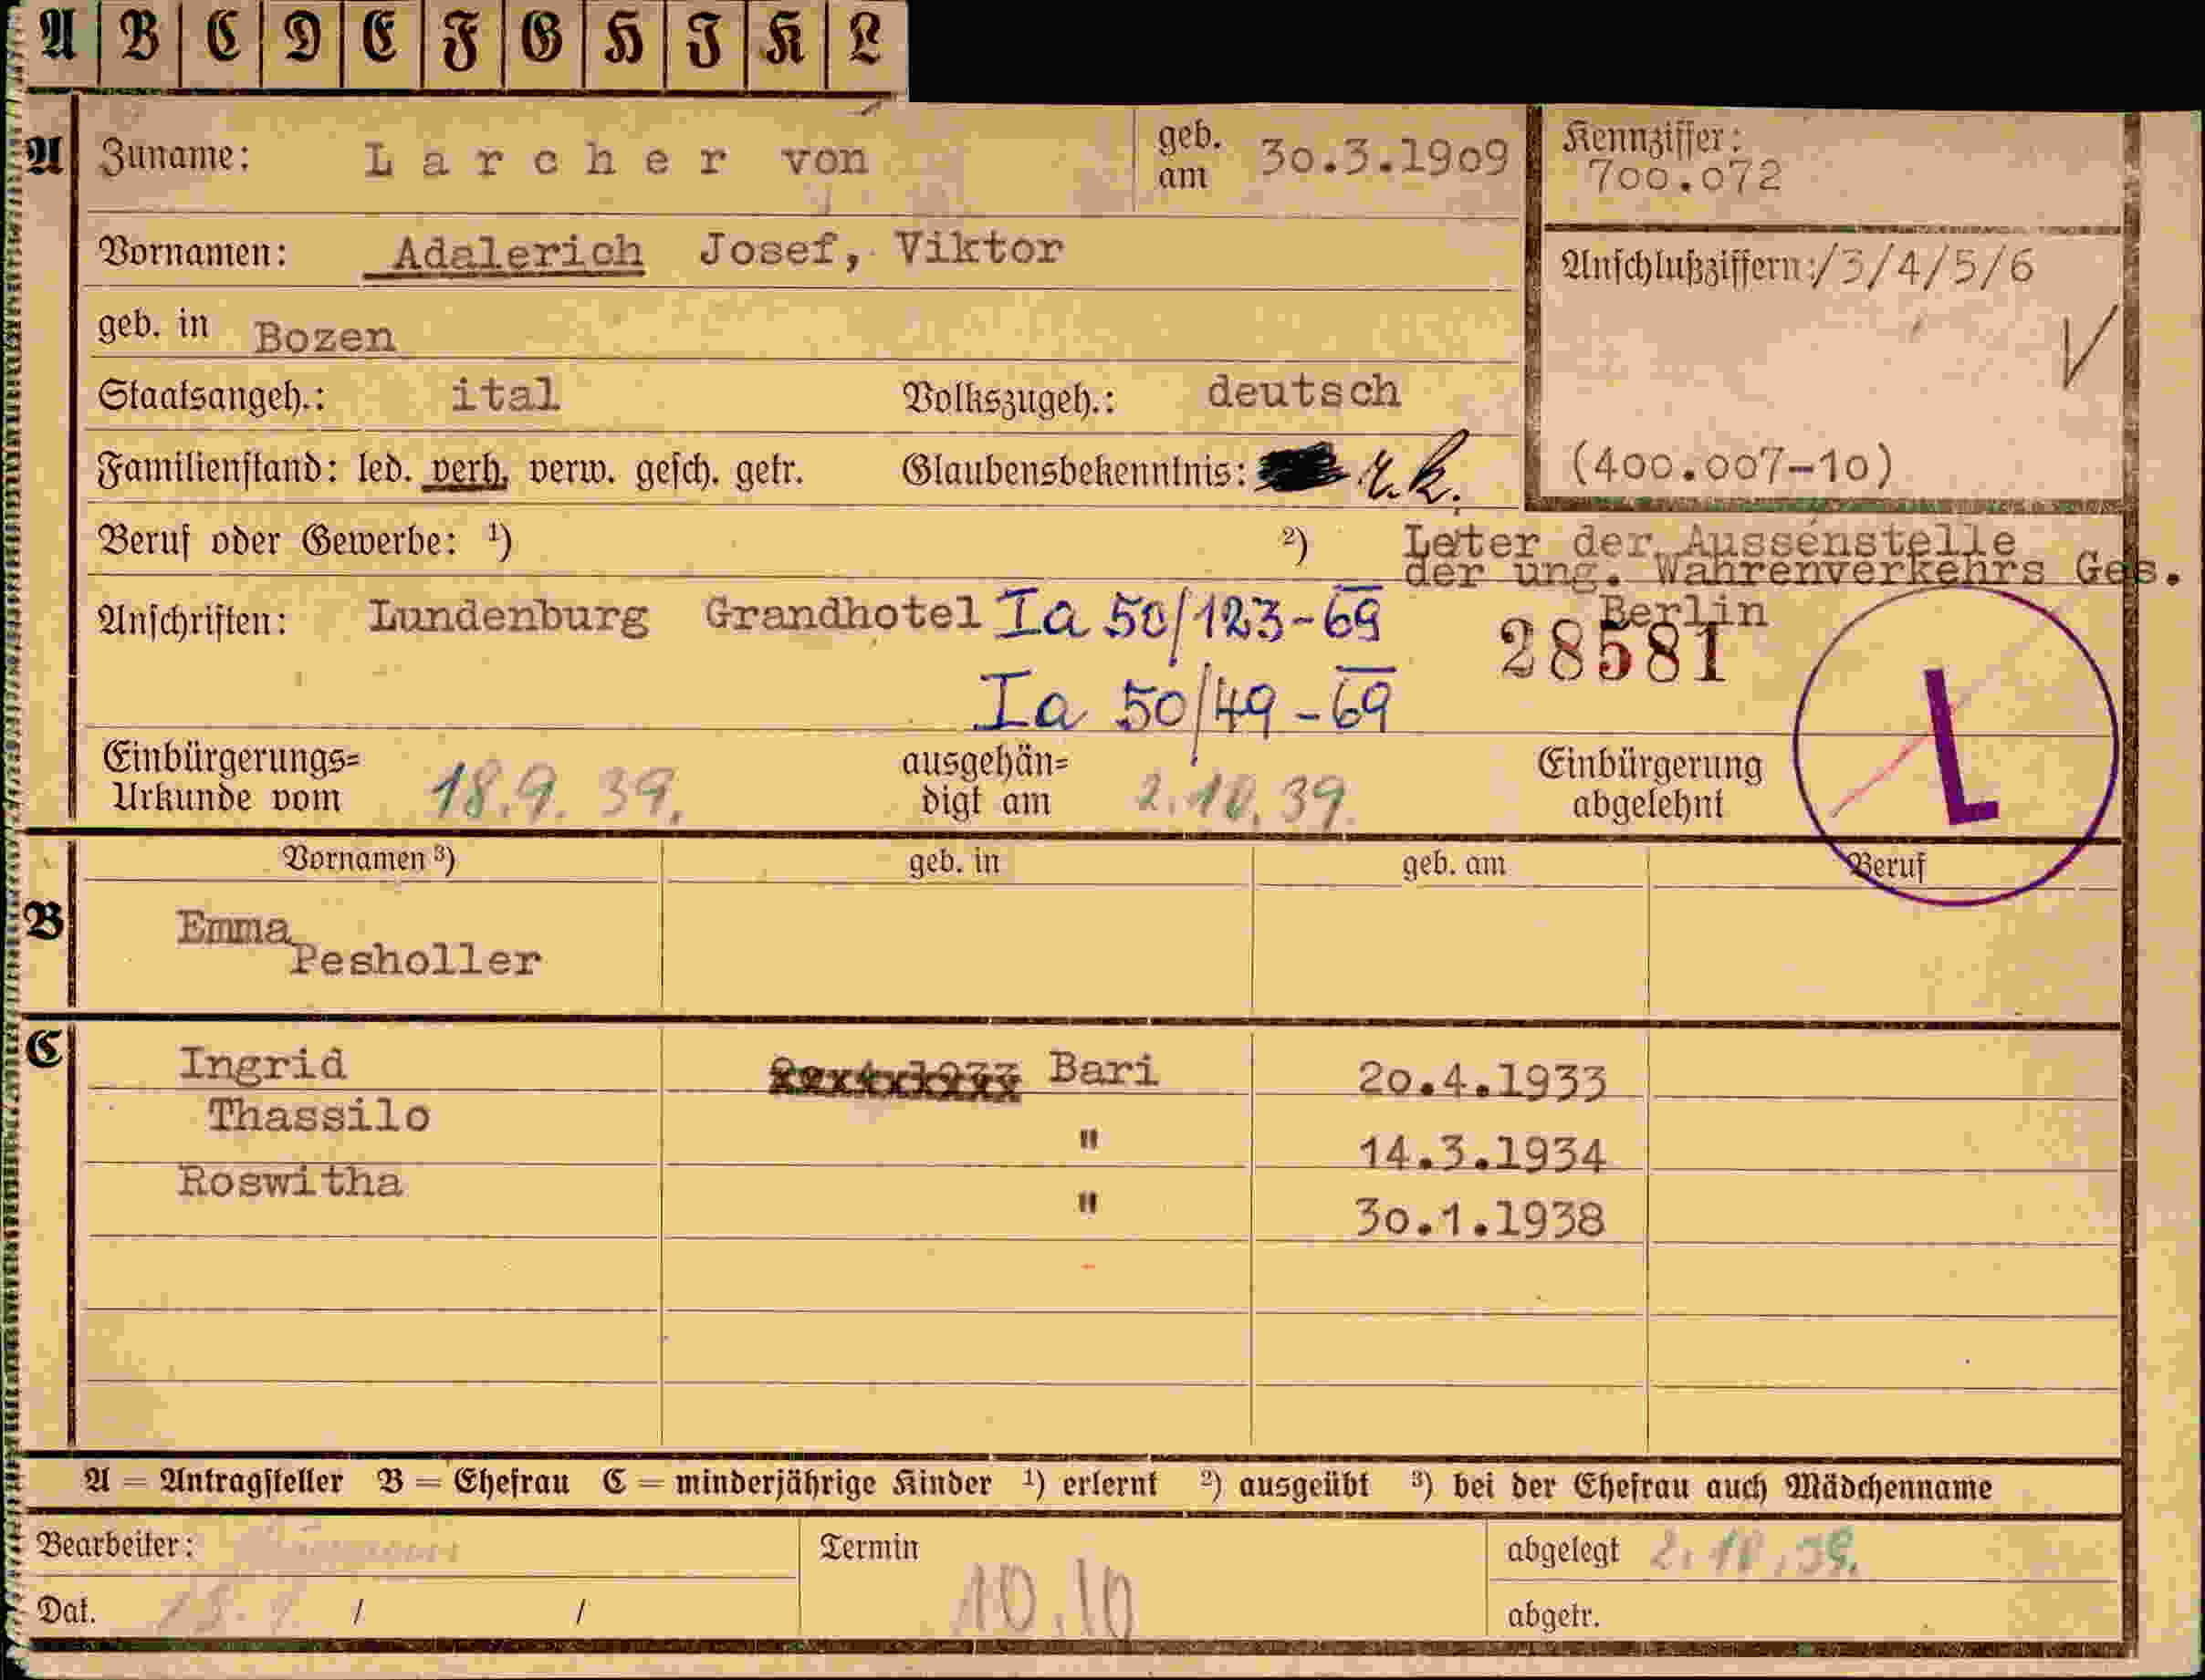 A B C D E F G H I K L
A Zuname: Larcher von geb. am 30.3.1909 Kennziffer: 700.072
Vornamen: Adalerich Josef, Viktor Anschlußziffern:/3/4/5/6
geb. in Bozen
Staatsangeh.: ital Volkszugeh.: deutsch
Familienstand: led. verh. verw. gesch. getr. Glaubensbekenntnis: r.k. (400.007-10)
Beruf oder Gewerbe: ¹) ²) Leter der Aussenstelle
der ung. Wahrenverkehrs Ges.
Berlin
Anschriften: Lundenburg Grandhotel Ia 50/123-69
28581
Ia 50/49-69
L
Einbürgerungs= Urkunde vom 18.9.39. ausgehän= digt am 2.10.39. Einbürgerung abgelehnt
Vornamen ³) geb. in geb. am Beruf
B Emma
Pesholler
C Ingrid Bari 20.4.1933
Thassilo " 14.3.1934
Roswitha " 30.1.1938
A = Antragsteller B = Ehefrau C = minderjährige Kinder ¹) erlernt ²) ausgeübt ³) bei der Ehefrau auch Mädchenname
Bearbeiter: Termin 10.10 abgelegt 2.10.39.
Dat. / / abgetr.